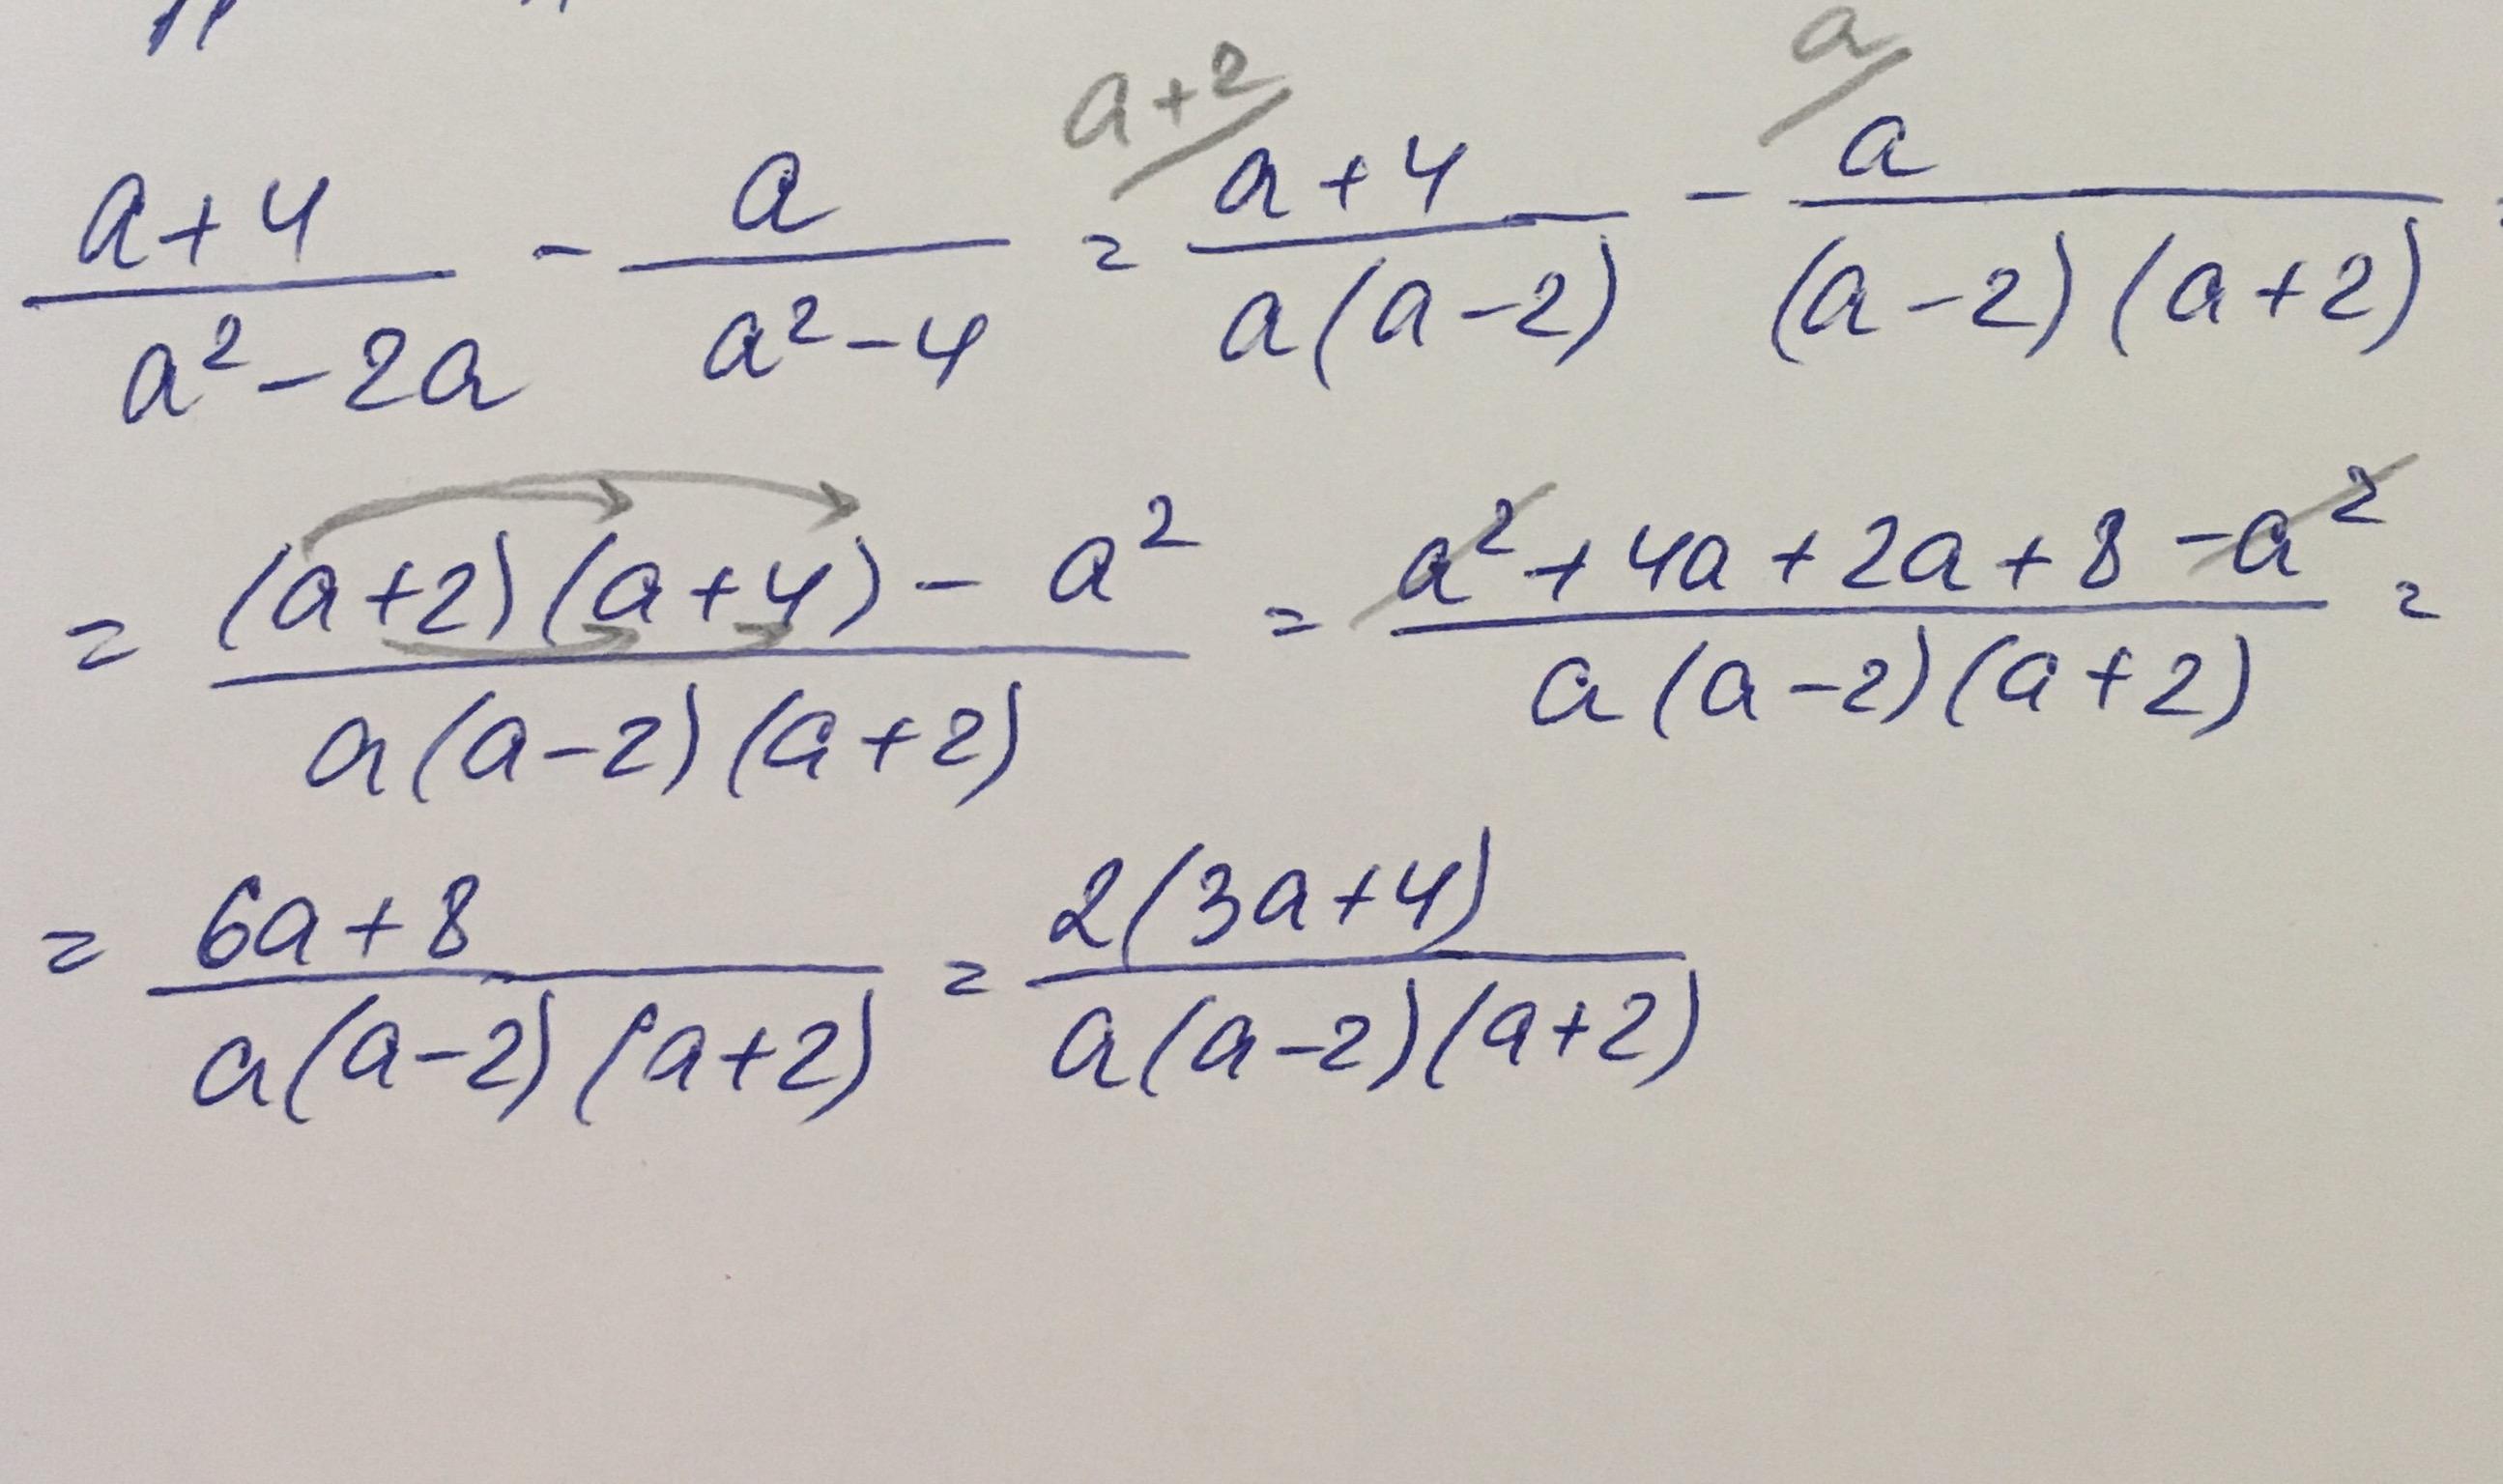 a+2/ a/
(a+4)/(a²-2a) - a/(a²-4) = (a+4)/(a(a-2)) - a/((a-2)(a+2))
= ((a+2)(a+4) - a²)/(a(a-2)(a+2)) = (a²+4a+2a+8-a²)/(a(a-2)(a+2)) =
= (6a+8)/(a(a-2)(a+2)) = 2(3a+4)/(a(a-2)(a+2))